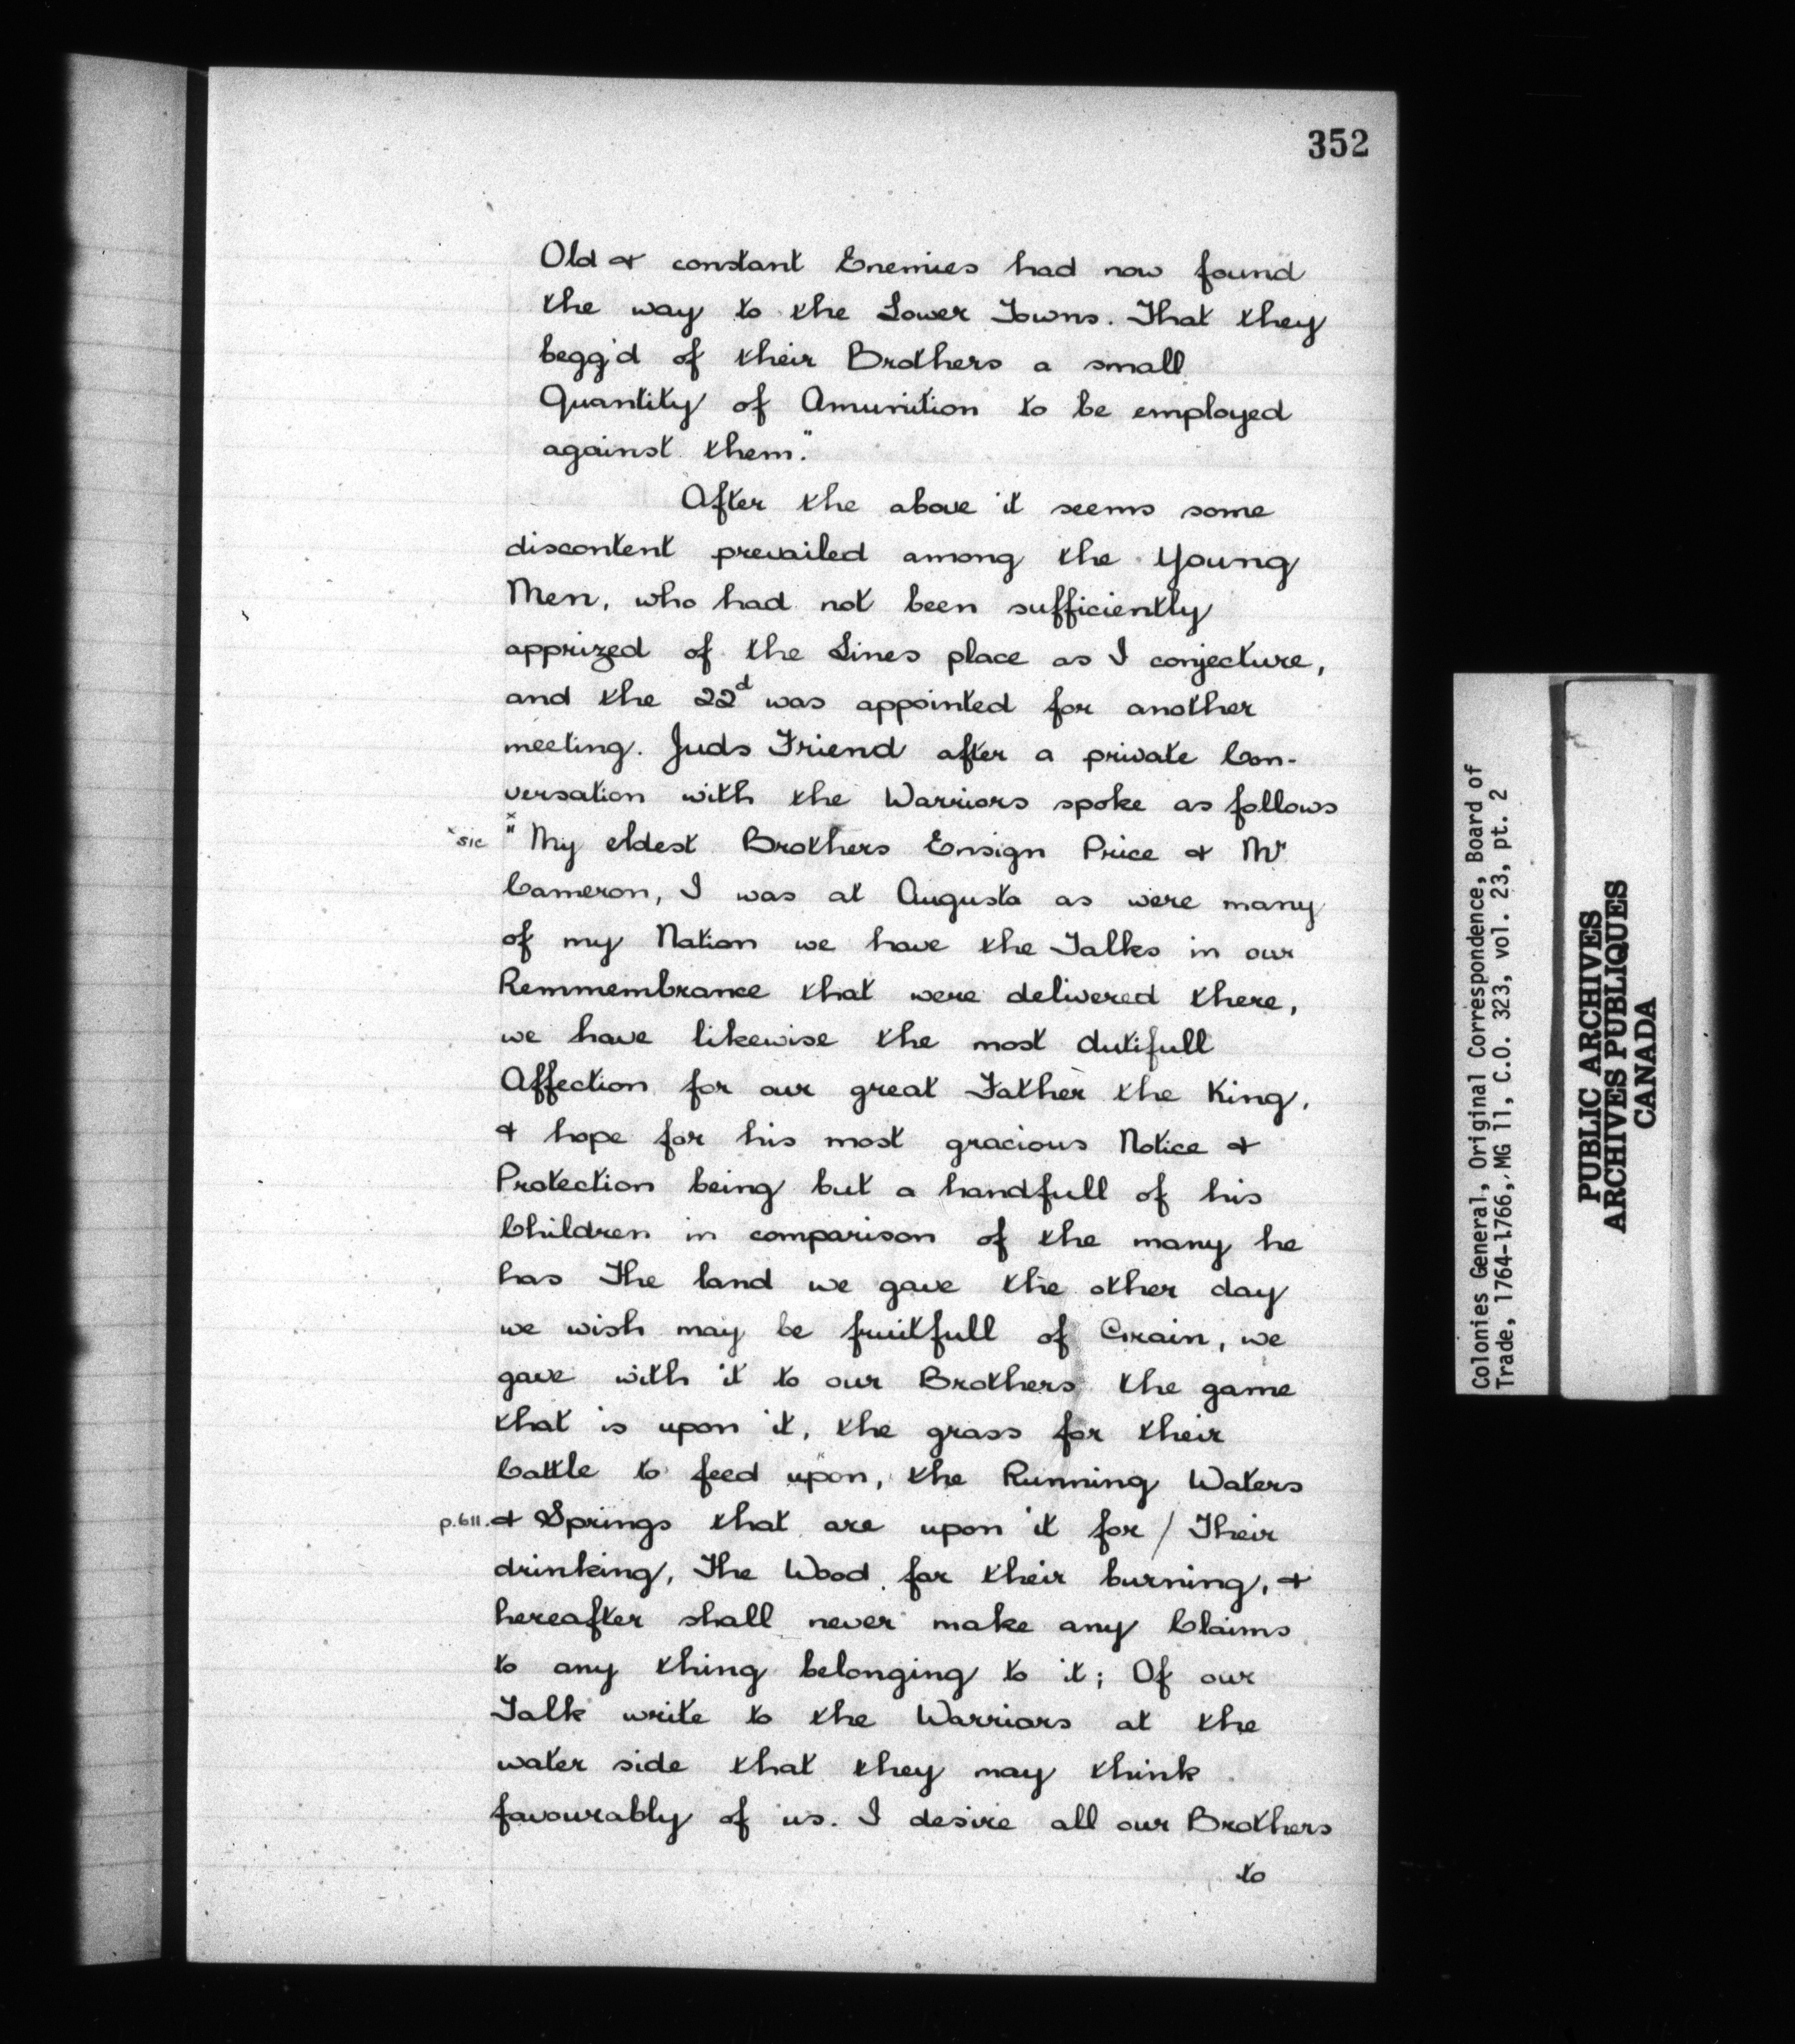 352
Old & constant Enemies had now found
the way to the Lower Towns. That they
begg'd of their Brothers a small
Quantity of Amunition to be employed
against them."
After the above it seems some
discontent prevailed among the Young
Men, who had not been sufficiently
apprized of the Lines place as I conjecture,
and the 22d was appointed for another
meeting. Juds Friend after a private Con-
versation with the Warriors spoke as follows
x sic x " My eldest Brothers Ensign Price & Mr
Cameron, I was at Augusta as were many
of my Nation we have the Talks in our
Remmembrance that were delivered there,
we have likewise the most dutifull
Affection for our great Father the King,
& hope for his most gracious Notice &
Protection being but a handfull of his
Children in comparison of the many he
has The land we gave the other day
we wish may be fruitfull of Grain, we
gave with it to our Brothers the game
that is upon it, the grass for their
Cattle to feed upon, the Running Waters
p.611. & Springs that are upon it for / Their
drinking, The Wood for their burning, &
hereafter shall never make any Claims
to any thing belonging to it; Of our
Talk write to the Warriors at the
water side that they may think
favourably of us. I desire all our Brothers
to
Colonies General, Original Correspondence, Board of
Trade, 1764-1766, MG 11, C.O. 323, vol. 23, pt. 2
PUBLIC ARCHIVES
ARCHIVES PUBLIQUES
CANADA